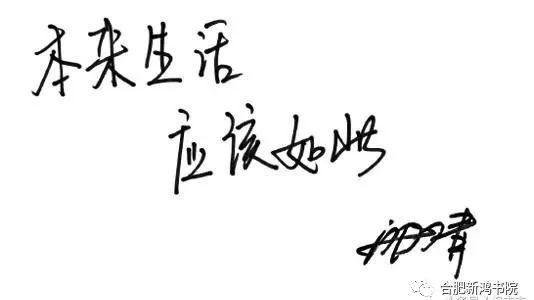 本来生活
应该如此
合肥新鸿书院